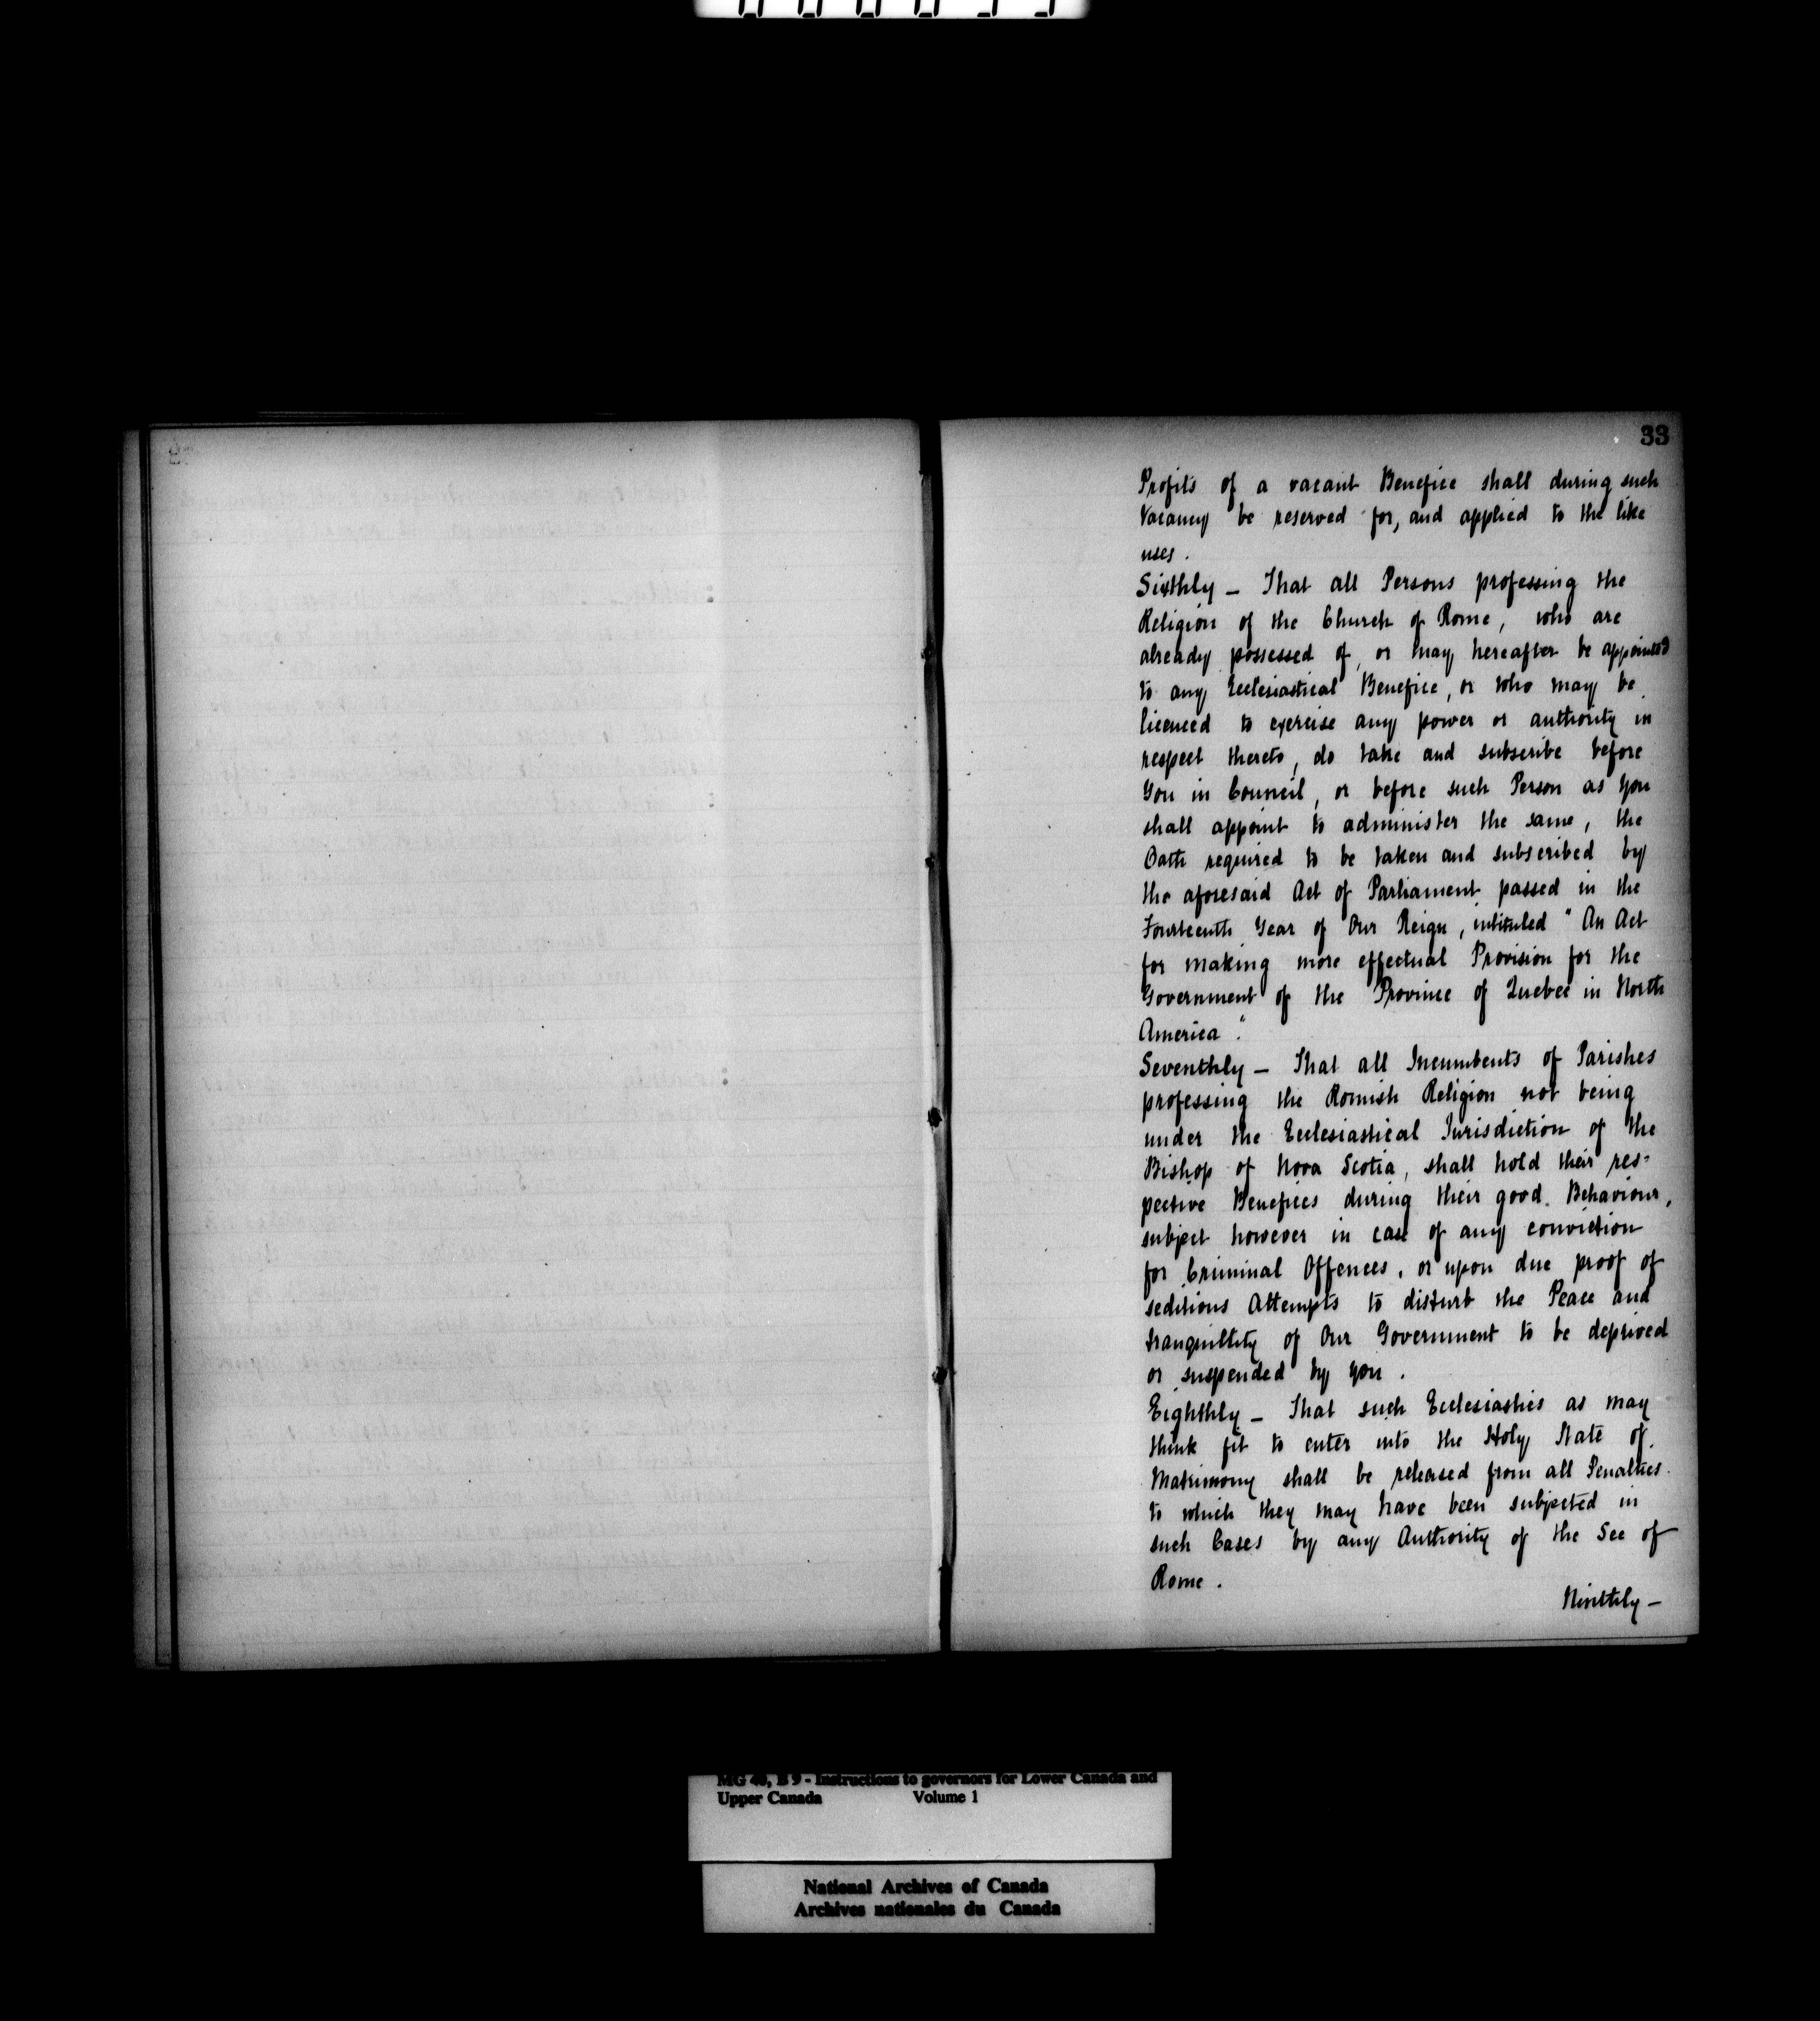 33
Profits of a vacant Benefice shall during such
Vacancy be reserved for, and applied to the like
uses.
Sixthly — That all Persons professing the
Religion of the Church of Rome, who are
already possessed of, or may hereafter be appointed
to any Ecclesiastical Benefice, or who may be
licenced to exercise any power or authority in
respect thereto, do take and subscribe before
You in Council, or before such Person as you
shall appoint to administer the same, the
Oath required to be taken and subscribed by
the aforesaid Act of Parliament passed in the
Fourteenth Year of Our Reign, intituled "An Act
for making more effectual Provision for the
Government of the Province of Quebec in North
America".
Seventhly — That all Incumbents of Parishes
professing the Romish Religion not being
under the Ecclesiastical Jurisdiction of the
Bishop of Nova Scotia, shall hold their res=
pective Benefices during their good Behaviour,
subject however in case of any conviction
for Criminal Offences, or upon due proof of
seditious Attempts to disturb the Peace and
tranquillity of Our Government to be deprived
or suspended by you.
Eighthly — That such Ecclesiastics as may
think fit to enter into the Holy State of
Matrimony shall be released from all Penalties
to which they may have been subjected in
such Cases by any Authority of the See of
Rome.
Ninthly —
MG 40, B 9 - Instructions to governors for Lower Canada and
Upper Canada Volume 1
National Archives of Canada
Archives nationales du Canada